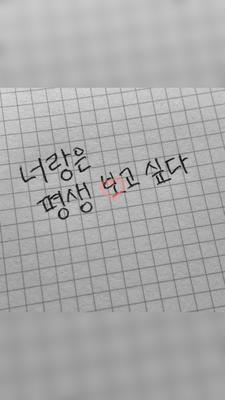 너랑은
평생 보고 싶다